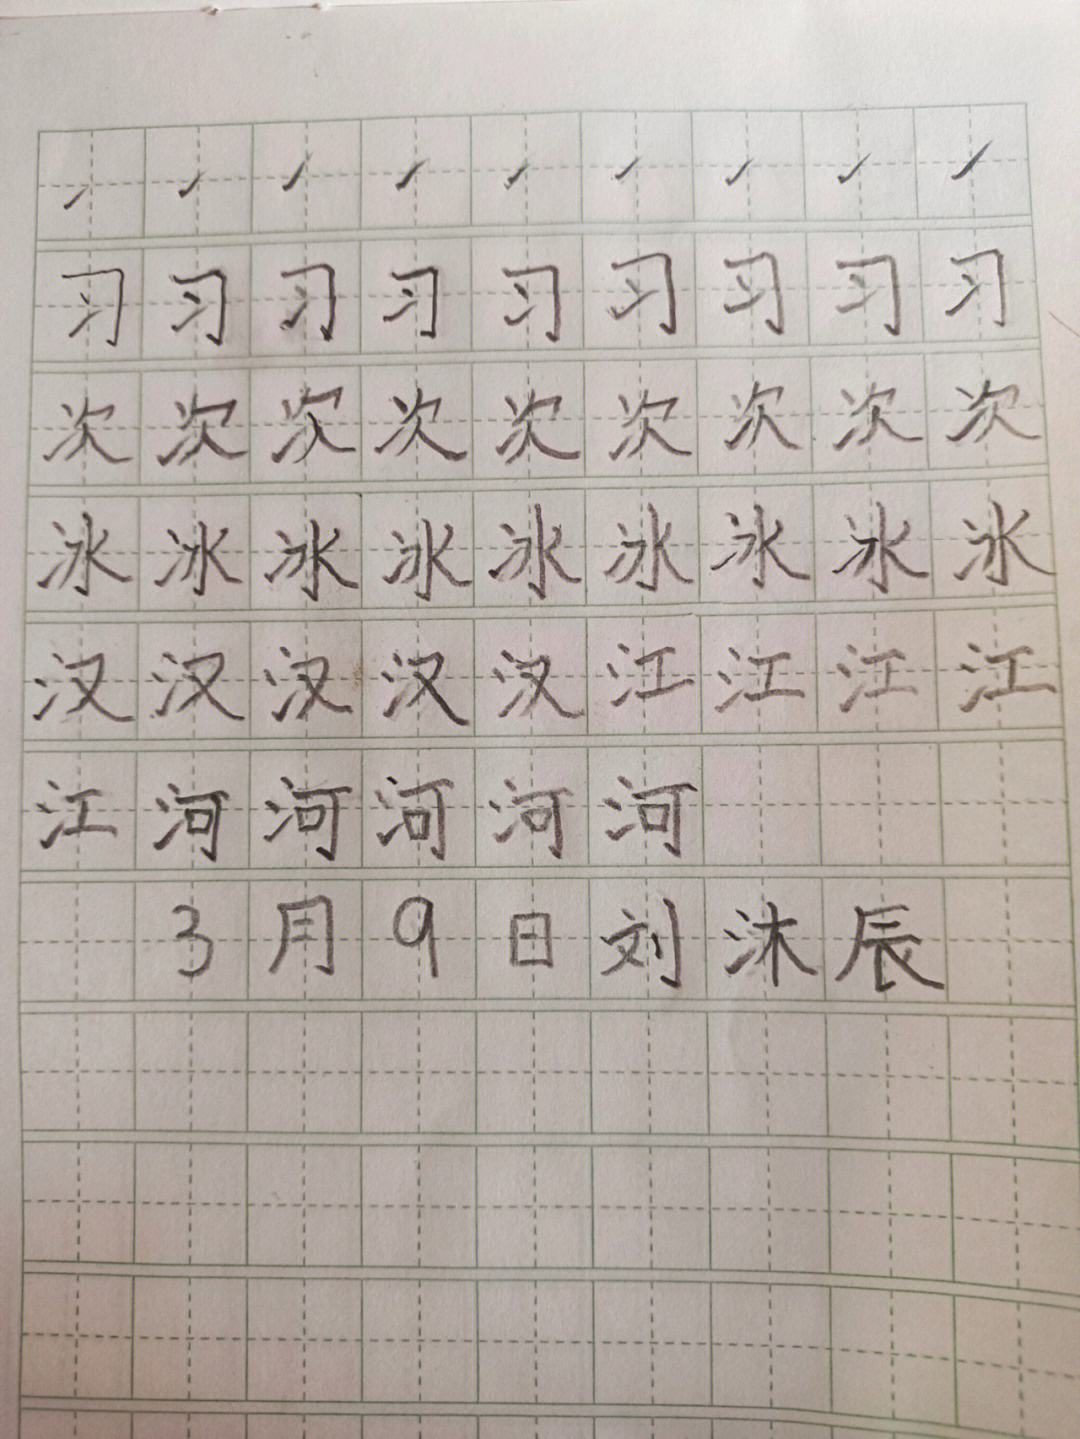 ㇀㇀㇀㇀㇀㇀㇀㇀㇀
习习习习习习习习习
次次次次次次次次次
冰冰冰冰冰冰冰冰冰
汉汉汉汉汉江江江江
江河河河河河
3月9日刘沐辰